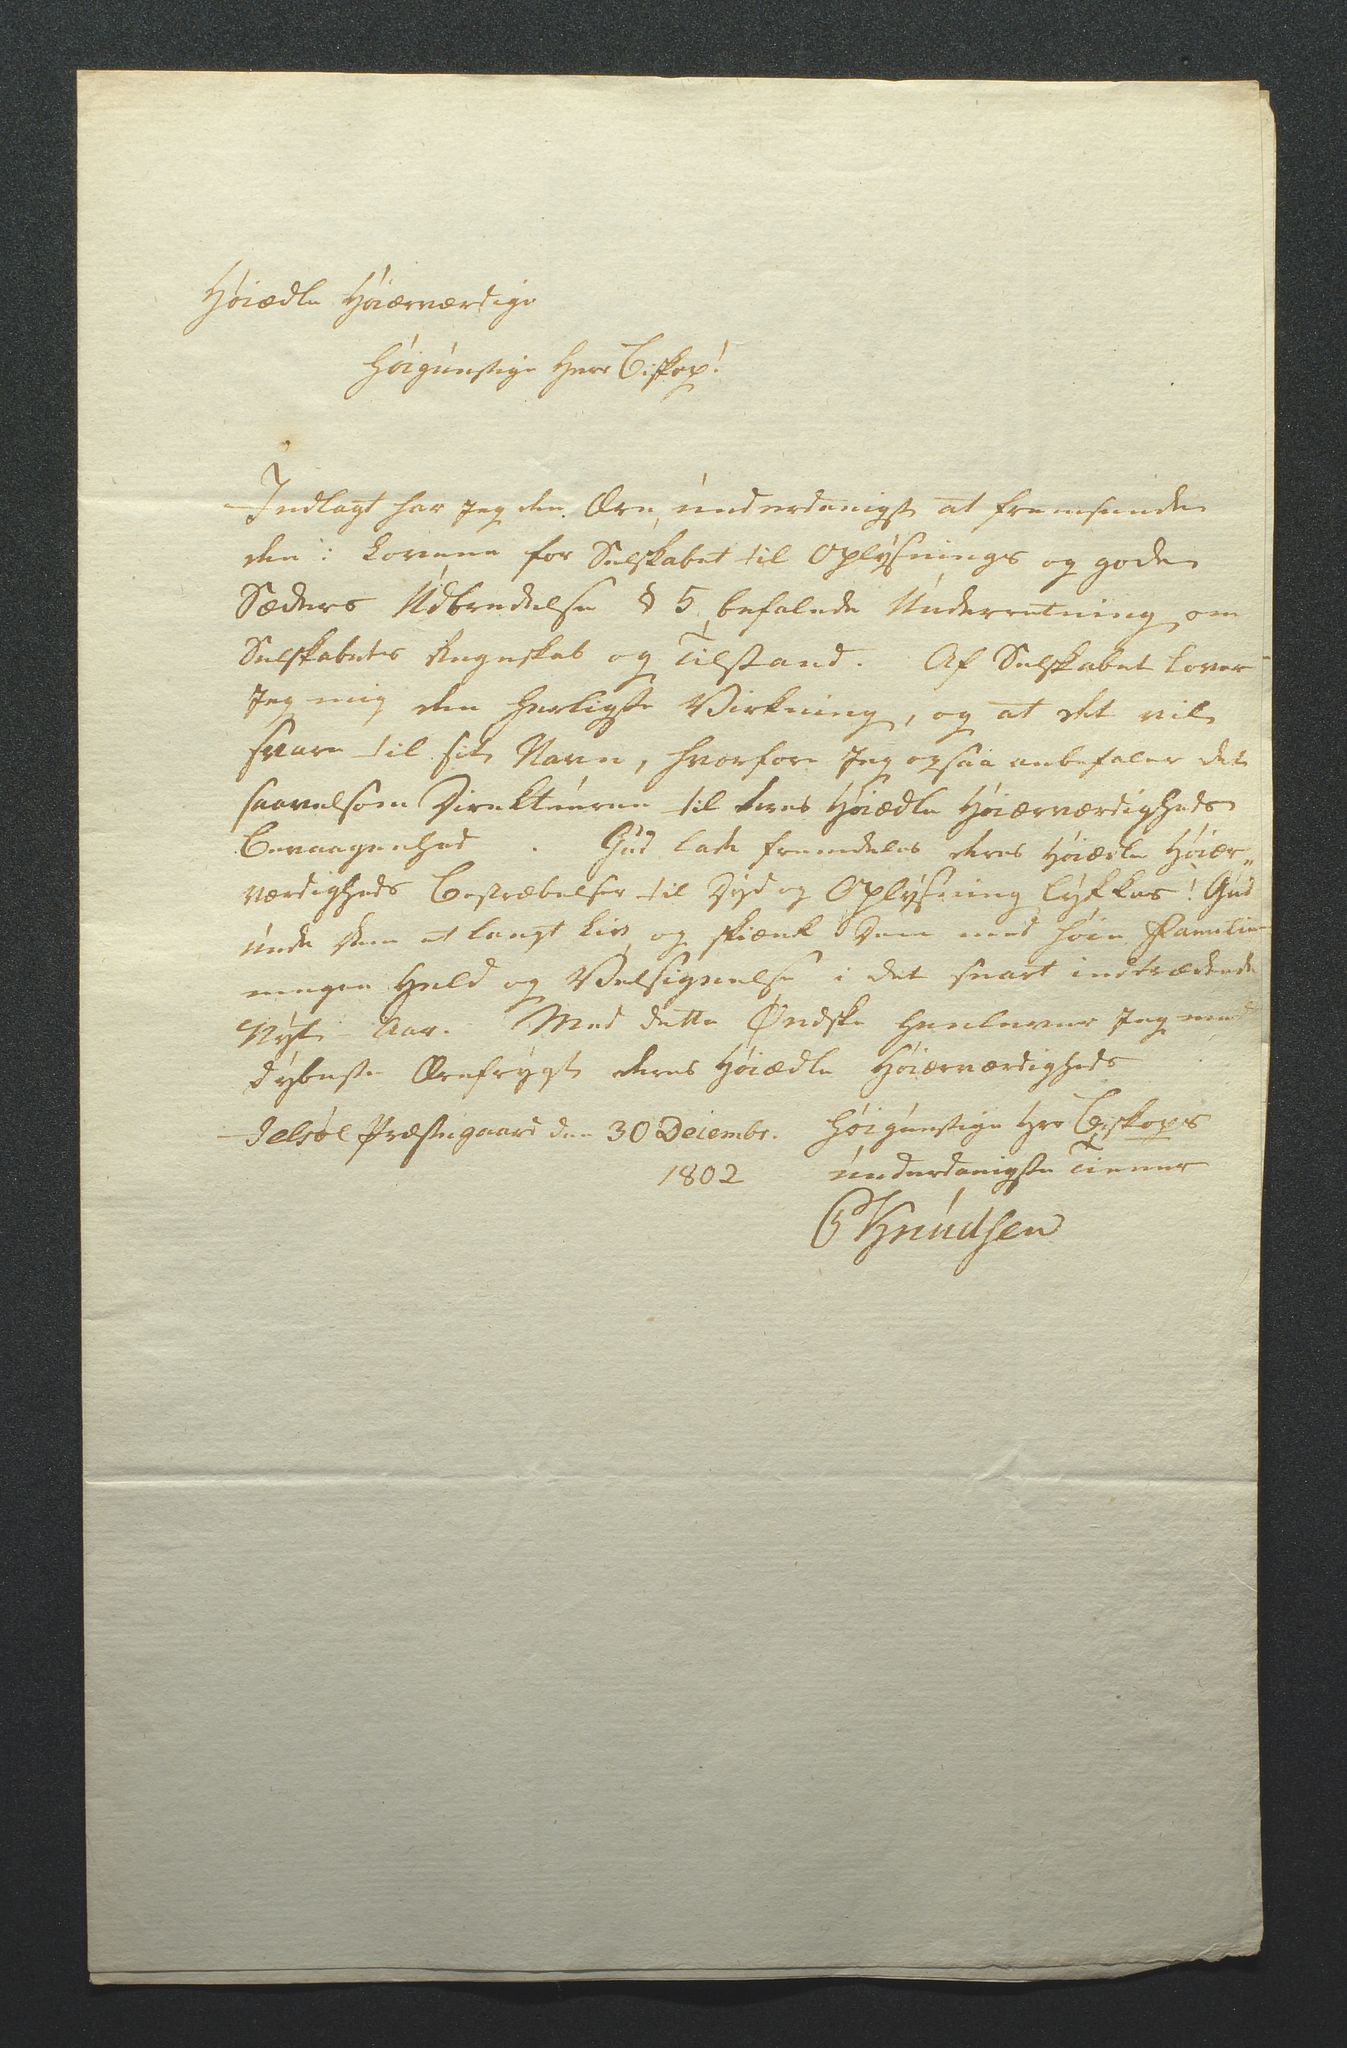 Høiædle Høiærværdige
Høigunstige Herr Biskop!
Indlagt har jeg den Ære, underdanigst at fremsende
den i Lovene for Selskabet til Oplysnings og gode
Sæders Udbredelse § 5 befalede Underretning om
Selskabets Regnskab og Tilstand. Af Selskabet lover
jeg mig den herligste Virkning, og at det vil
svare til sit Navn, hvorfore jeg ogsaa anbefaler det
saavelsom Direkteurene til deres Høiædle Høiærværdigheds
Bevaagenhed. Gud lade fremdeles deres Høiædle Høiær„
værdigheds Bestræbelser til Dyd og Oplysning lykkes! Gud
unde dem et langt Liv, og skiænk Dem med høie Familie
megen Held og Velsignelse i det snart indtrædende
Nyt Aar. Med dette Øndske henlever jeg med
dybeste Ærefrygt deres Høiædle Høiærværdigheds
Jelsøe Præstegaard den 30 Decembr. høigunstige Hr. Biskops
1802 underdanigste Tiener
C Knudsen